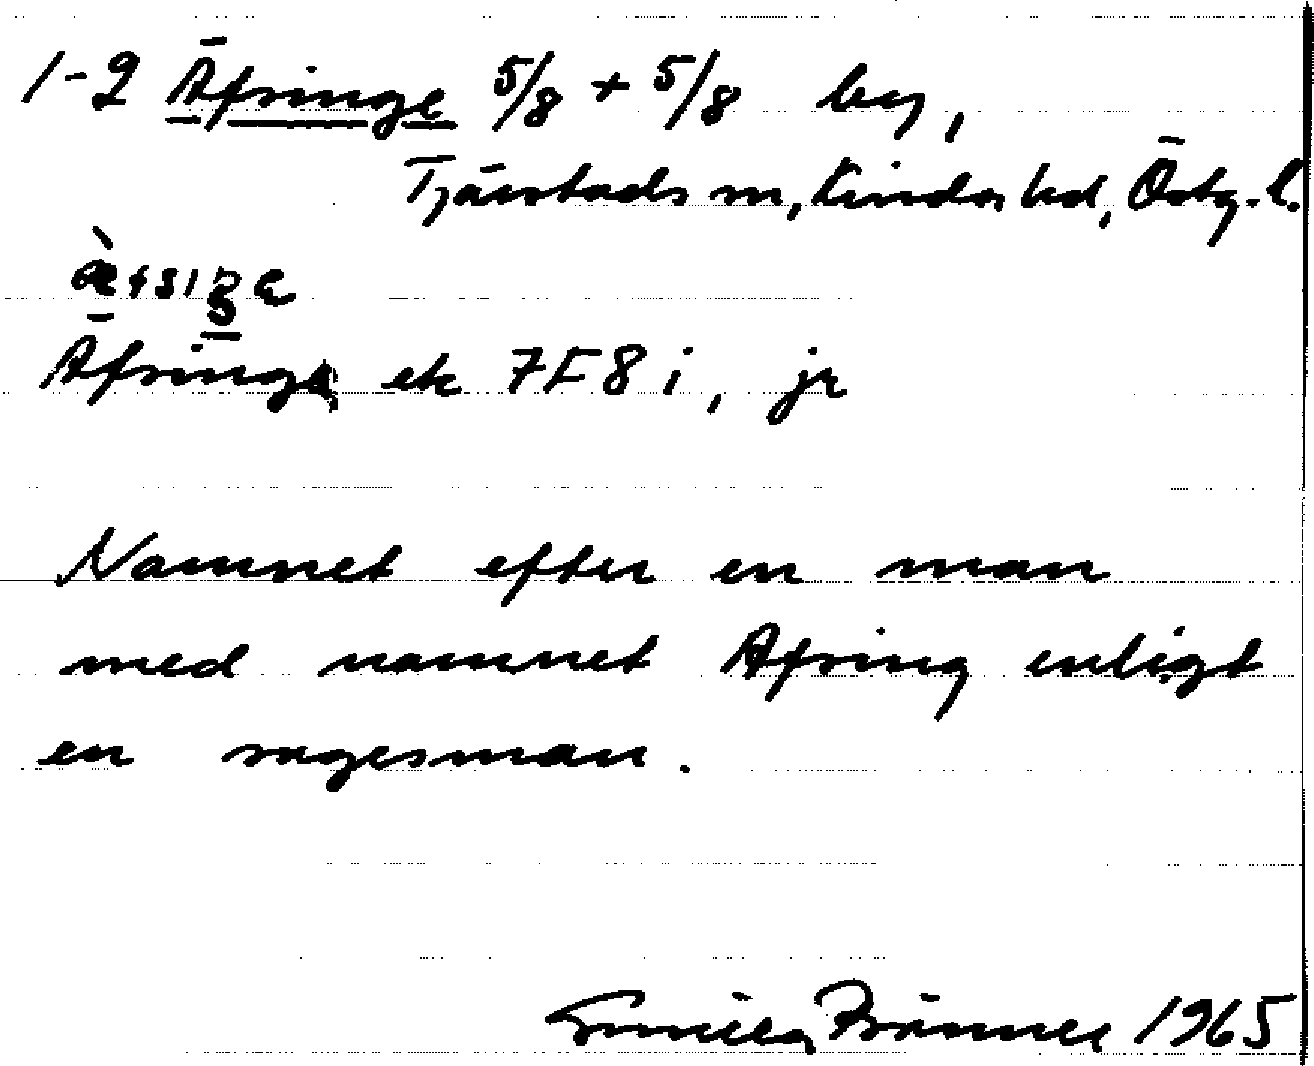 1-2 Äfringe 5/8 + 5/8 by,
Tjärstads sn, Kinds hd, Östg. l.
Äfringe ek 7F8i, jr
Namnet efter en man
med namnet Äfring enligt
en sagesman.
Gunilla Brännee 1965